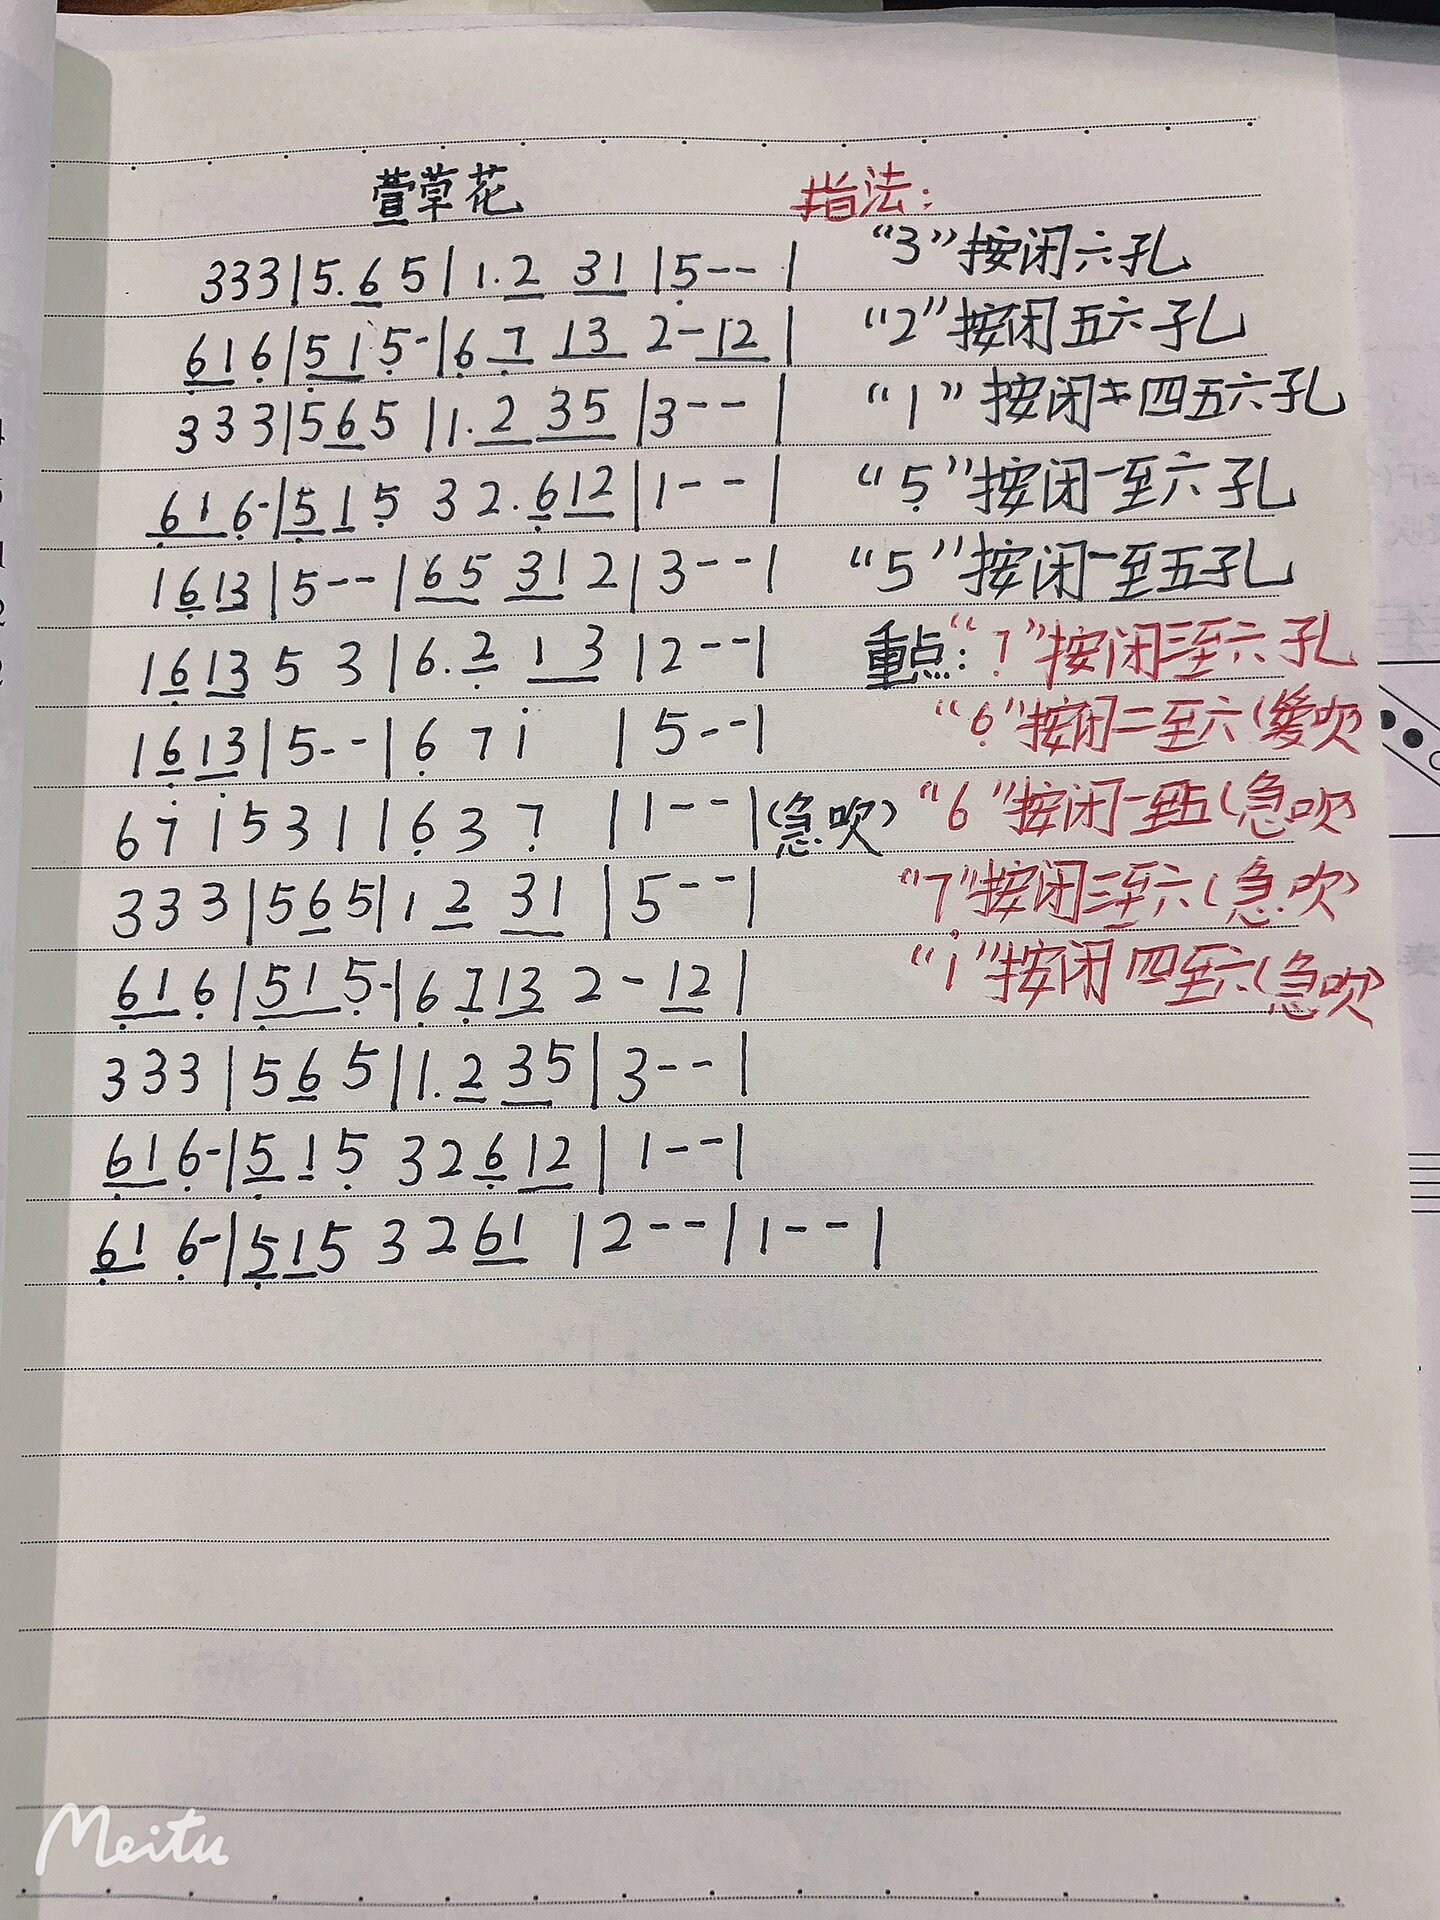 萱草花
指法：
333|5.6 5|1.2 31|5--|
“3”按闭六孔
616|515-|67 13 2-12|
“2”按闭五六孔
333|565|1.2 35|3--|
“1”按闭 四五六孔
616-|515 32.612|1--|
“5”按闭一至六孔
1613|5--|65 312|3--|
“5”按闭一至五孔
1613 5 3|6.2 13|2--|
重点：“7”按闭三至六孔
1613|5--|6 7 i |5--|
“6”按闭二至六(缓吹)
67i531|637 |1--|(急吹)
“6”按闭一至五(急吹)
333|565|12 31|5--|
“7”按闭三至六(急吹)
616|515-|6713 2-12|
“i”按闭四至六(急吹)
333|565|1.2 35|3--|
616-|515 32612|1--|
61 6-|515 3261 |2--|1--|
Meitu